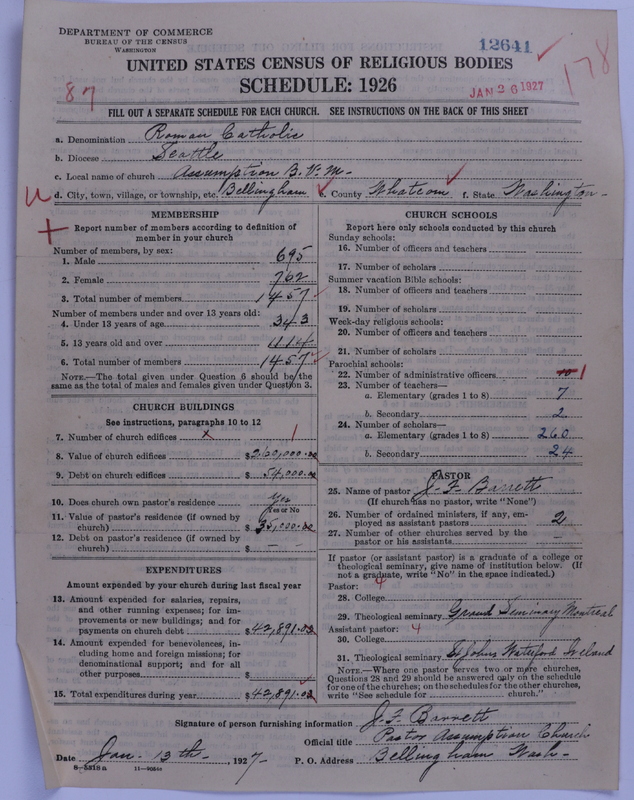 DEPARTMENT OF COMMERCE
BUREAU OF THE CENSUS
WASHINGTON
12641
178
UNITED STATES CENSUS OF RELIGIOUS BODIES
SCHEDULE: 1926
JAN 26 1927
87
FILL OUT A SEPARATE SCHEDULE FOR EACH CHURCH. SEE INSTRUCTIONS ON THE BACK OF THIS SHEET
a. Denomination Roman Catholic
b. Diocese Seattle
c. Local name of church Assumption B.V.M.
d. City, town, village, or township, etc. Bellingham e. County Whatcom f. State Washington
MEMBERSHIP
Report number of members according to definition of
member in your church
Number of members, by sex:
1. Male 695
2. Female 762
3. Total number of members 1457
Number of members under and over 13 years old:
4. Under 13 years of age 343
5. 13 years old and over 1114
6. Total number of members 1457
NOTE.—The total given under Question 6 should be the
same as the total of males and females given under Question 3.
CHURCH BUILDINGS
See instructions, paragraphs 10 to 12
7. Number of church edifices x 1
8. Value of church edifices $260,000.00
9. Debt on church edifices $54,000.00
10. Does church own pastor's residence? Yes
Yes or No
11. Value of pastor's residence (if owned by
church) $35,000.00
12. Debt on pastor's residence (if owned by
church) $ — —
EXPENDITURES
Amount expended by your church during last fiscal year
13. Amount expended for salaries, repairs,
and other running expenses; for im-
provements or new buildings; and for
payments on church debt $42,891.03
14. Amount expended for benevolences, in-
cluding home and foreign missions; for
denominational support; and for all
other purposes $
15. Total expenditures during year $42,891.03
CHURCH SCHOOLS
Report here only schools conducted by this church
Sunday schools:
16. Number of officers and teachers
17. Number of scholars
Summer vacation Bible schools:
18. Number of officers and teachers
19. Number of scholars
Week-day religious schools:
20. Number of officers and teachers
21. Number of scholars
Parochial schools:
22. Number of administrative officers 1
23. Number of teachers—
a. Elementary (grades 1 to 8) 7
b. Secondary 2
24. Number of scholars—
a. Elementary (grades 1 to 8) 260
b. Secondary 24
PASTOR
25. Name of pastor J. F. Barrett
(If church has no pastor, write "None")
26. Number of ordained ministers, if any, em-
ployed as assistant pastors 2
27. Number of other churches served by the
pastor or his assistants —
If pastor (or assistant pastor) is a graduate of a college or
theological seminary, give name of institution below. (If
not a graduate, write "No" in the space indicated.)
Pastor: 4
28. College
29. Theological seminary Grand Seminary Montreal
Assistant pastor: 4
30. College
31. Theological seminary St Johns Waterford Ireland
NOTE.—Where one pastor serves two or more churches,
Questions 28 and 29 should be answered only on the schedule
for one of the churches; on the schedules for the other churches,
write "See schedule for church."
Signature of person furnishing information J. F. Barrett
Official title Pastor Assumption Church
Date Jan. 13th, 1927 P. O. Address Bellingham Wash
8-3318a 11—9034